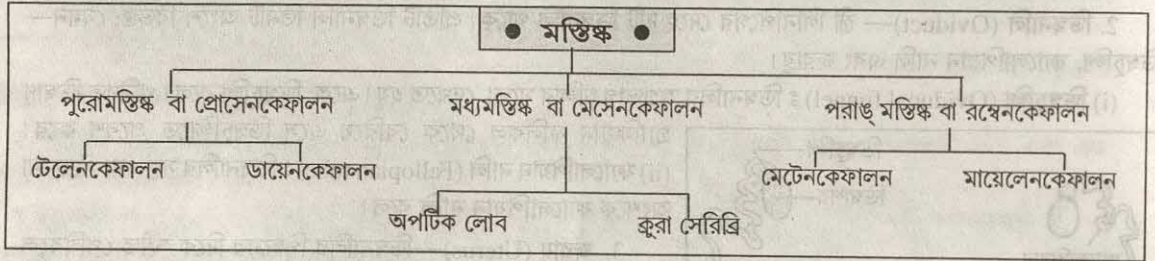 ● মস্তিষ্ক ●
পুরোমস্তিষ্ক বা প্রোসেনকেফালন
মধ্যমস্তিষ্ক বা মেসেনকেফালন
পরাঙ্ মস্তিষ্ক বা রম্বেনকেফালন
টেলেনকেফালন
ডায়েনকেফালন
মেটেনকেফালন
মায়েলেনকেফালন
অপটিক লোব
ক্রুরা সেরিব্রি